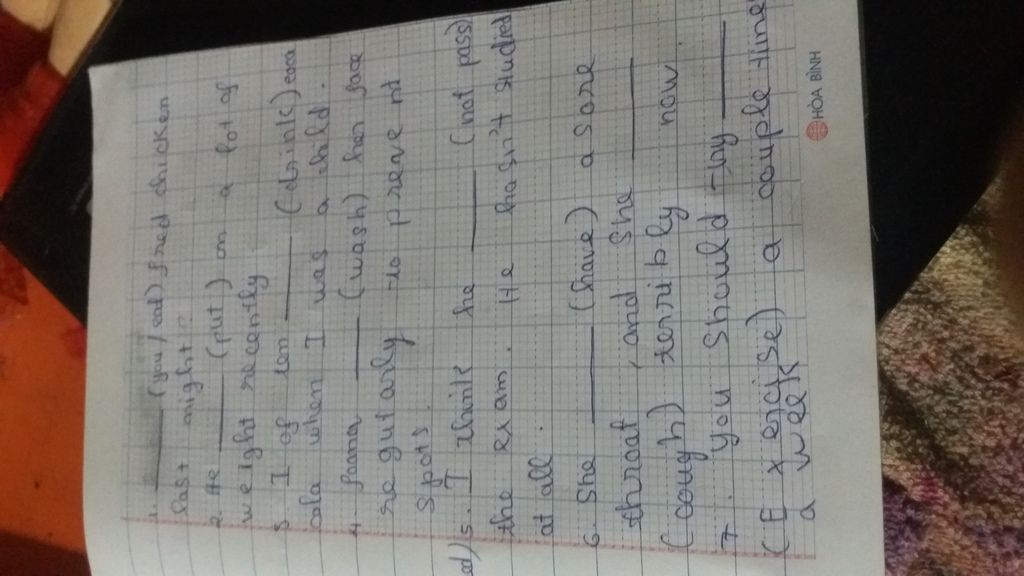 1. ______ (you/eat) fried chicken
last night?
2. He ______ (put) on a lot of
weight recently
3. I often ______ (drink) coca
cola when I was a child.
4. Hama ______ (wash) her face
regularly to prevent
spots.
5. I think he ______ (not pass)
the exam. He hasn't studied
at all.
6. She ______ (have) a sore
throat, and she ______
(cough) terribly now
7. You should try ______
(Exercise) a couple time
a week
HÒA BÌNH